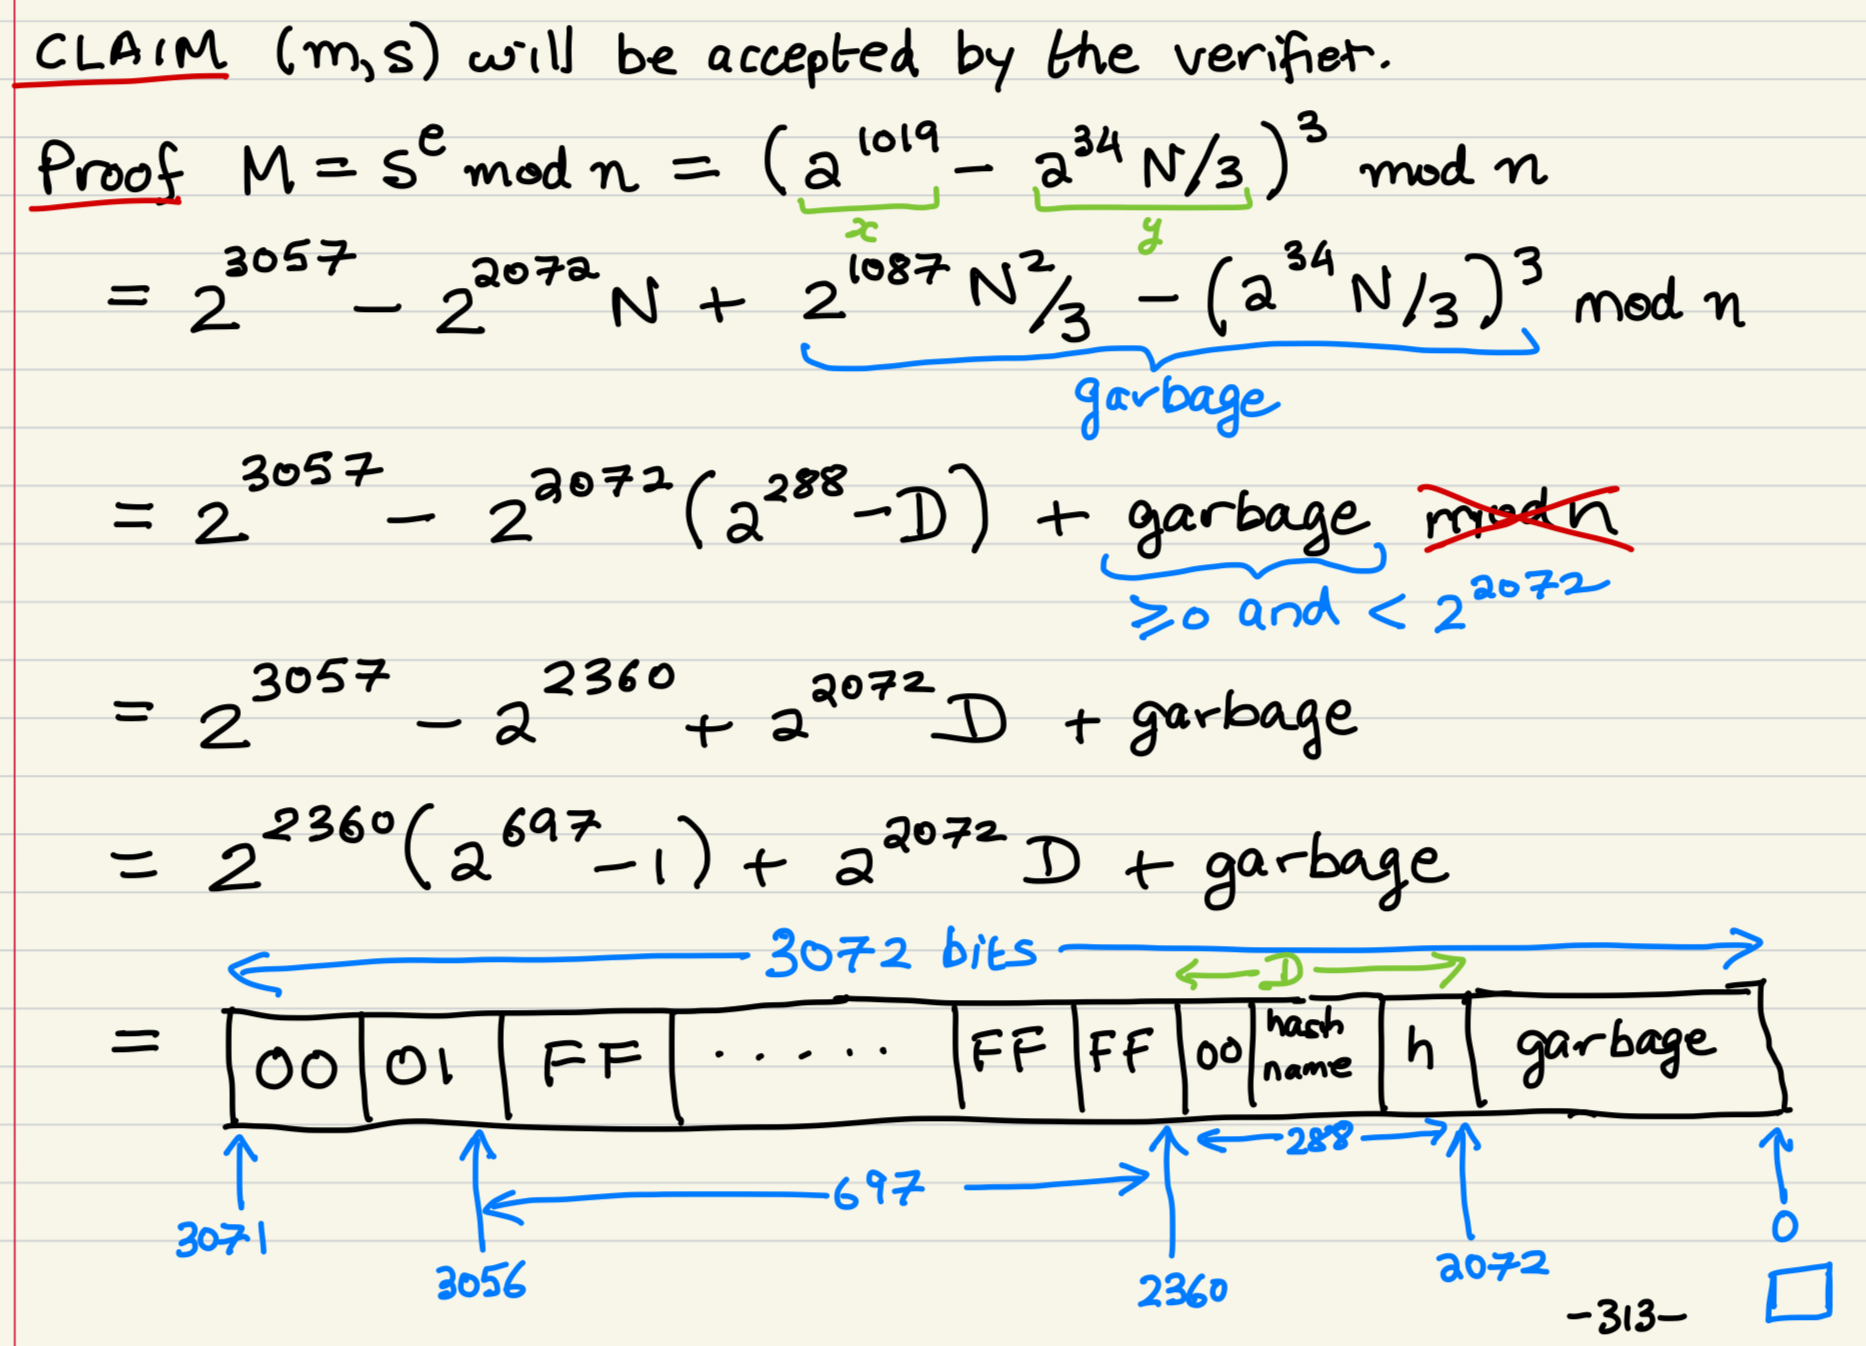 CLAIM (m,s) will be accepted by the verifier.
Proof M = s^e mod n = (2^1019 - 2^34 N/3)^3 mod n
x y
= 2^3057 - 2^2072 N + 2^1087 N^2/3 - (2^34 N/3)^3 mod n
garbage
= 2^3057 - 2^2072 (2^288 - D) + garbage mod n
≥0 and < 2^2072
= 2^3057 - 2^2360 + 2^2072 D + garbage
= 2^2360 (2^697 - 1) + 2^2072 D + garbage
3072 bits
D
= 00 01 FF ..... FF FF 00 hash name h garbage
288
697
3071 3056 2360 2072 0
-313-